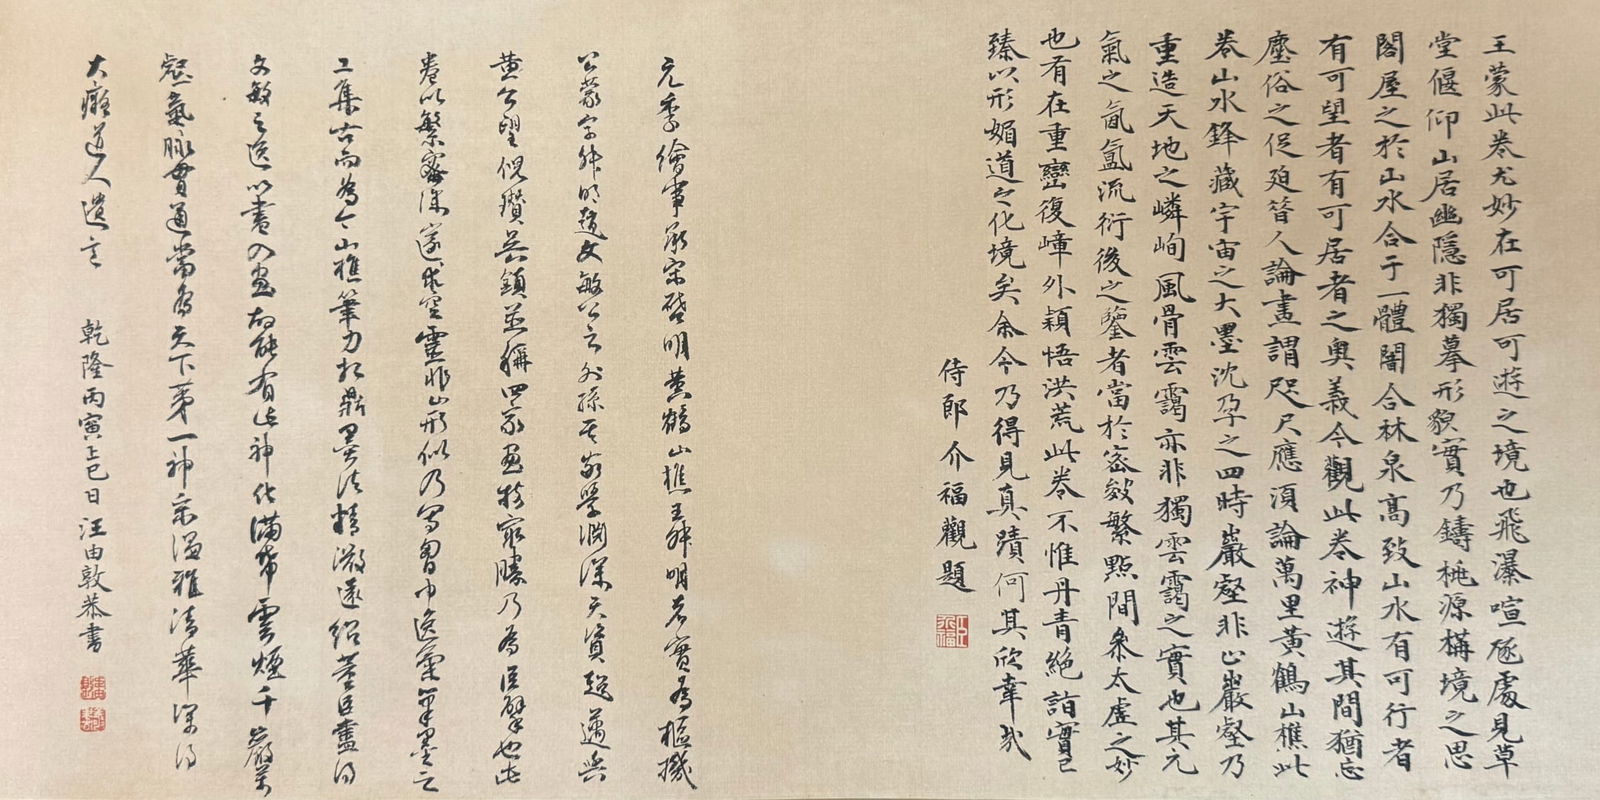 王蒙此卷尤妙在可居可遊之境也飛瀑喧豗處見草
堂偃仰山居幽隱非獨摹形貌實乃鑄桃源構境之思
閣屋之於山水合于一體闇合林泉高致山水有可行者
有可望者有可居者之奧義今觀此卷神遊其間猶忘
塵俗之促迫昔人論畫謂咫尺應須論萬里黃鶴山樵此
卷山水鋒藏宇宙之大墨沈孕之四時巖壑非止巖壑乃
重造天地之嶙峋風骨雲靄亦非獨雲靄之實也其元
氣之氤氳流衍後之鑒者當於密皴繁點間參太虛之妙
也有在重巒復嶂外穎悟洪荒此卷不惟丹青絕詣實已
臻以形媚道之化境矣余今乃得見真蹟何其欣幸哉
侍郎介福觀題
臣介福
元季繪事承宋啓明黄鶴山樵王叔明者實為樞機
公蒙字叔明趙文敏公之外孫其家學淵深天資超邁與
黄公望倪瓚吳鎮並稱四家畫技最勝乃為巨擘也此
卷以繁密深邃求空靈非山形似乃寫胸中逸氣筆墨之
工集古而為今山樵筆力扛鼎墨法精微遠紹董巨盡得
文敏之遺以書入畫故能有此神化滿幀雲煙千巖萬
壑氣脉貫通當為天下第一神品温雅清華深得
大癡道人遺意
乾隆丙寅上巳日汪由敦恭書